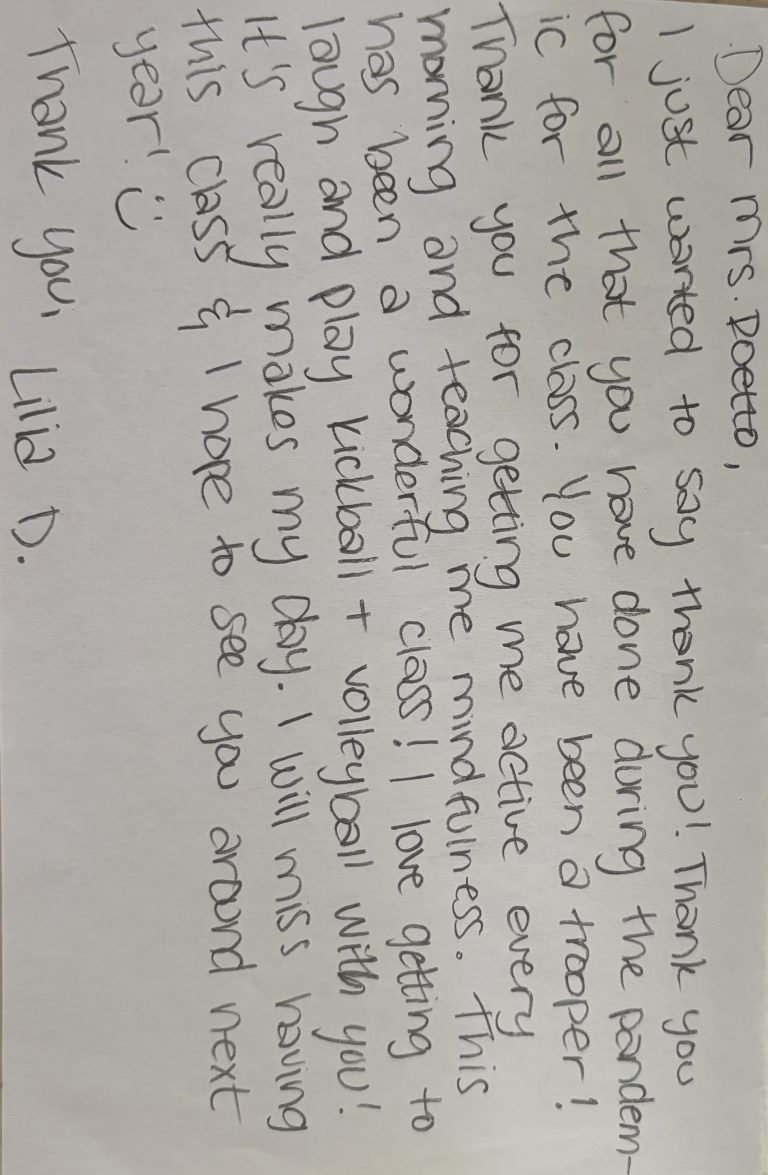 Dear Mrs. Doetto,
I just wanted to say thank you! Thank you
for all that you have done during the pandem-
ic for the class. You have been a trooper!
Thank you for getting me active every
morning and teaching me mindfulness. This
has been a wonderful class! I love getting to
laugh and play kickball + volleyball with you!
It's really makes my day. I will miss having
this class & I hope to see you around next
year! :)
Thank you, Lilia D.